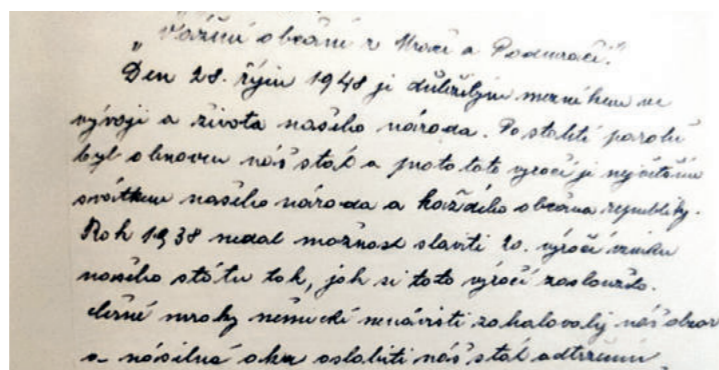 „Vážení občané z Mrače a Podmračí!"
Den 28. říjen 1948 je důležitým mezníkem ve
vývoji a života našeho národa. Po staletí porobě
byl obnoven náš stát a proto toto výročí je největším
svátkem našeho národa a každého občana republiky.
Rok 1938 nedal možnost slaviti 20. výročí vzniku
našeho státu tak, jak si toto výročí zasloužilo.
černé mraky německé nenávisti zahalovaly náš obzor
a násilná oslabiti náš stát odtržením